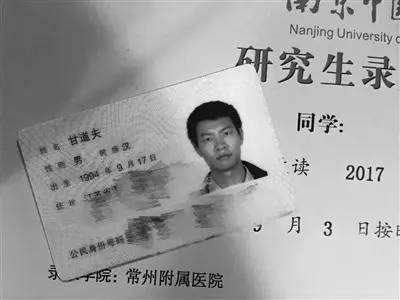 南京中
Nanjing University o
研究生录
同学:
读 2017
月 3 日按
学院: 常州附属医院
姓名 甘道夫
性别 男 民族 汉
出生 1994 年 9 月 17 日
住址
公民身份号码